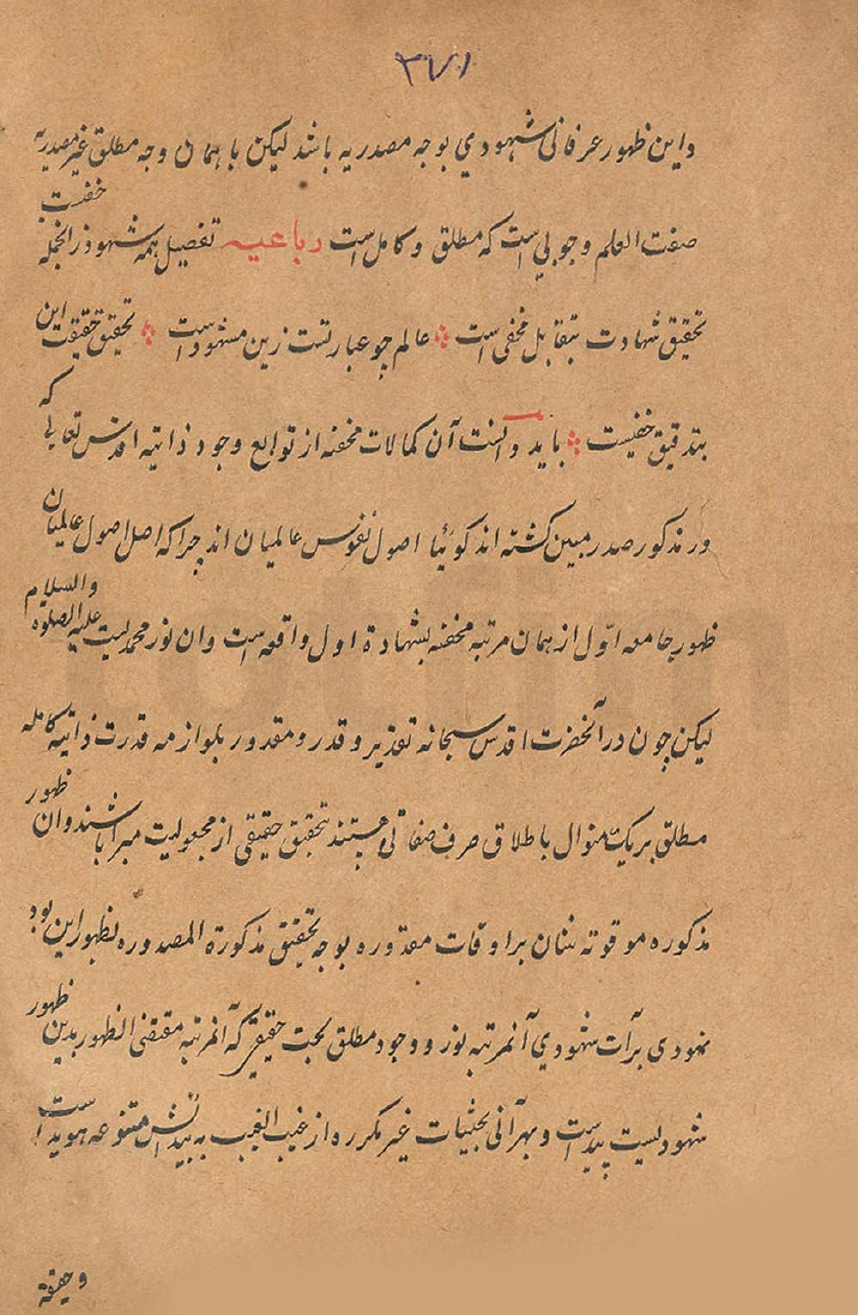 ۳۷۱
واین ظهور عرفانی شهودي بوجه مصدریه باشد لیکن با همان وجه مطلق غیر مصدریه
صفت العلم وجوبي است که مطلق و کامل است رباعیه تفصیل همه شهود ذرالجمله خفیست
تحقیق شهادت بتقابل مخفی است عالم چو عبارتست زین مشهود است تحقیق حقیقت این
بتدقیق خفیست باید دانست آن کمالات مخفنه از توابع وجود ذاتیه اقدس تعالی که
در مذکور صدر مبین کشته اند کوئیا اصول نفوس عالمیان اند چراکه اصل اصول عالمیان
ظهور جامعه اوّل از همان مرتبه مخفنه بشهادة اول واقعه است وان نور محمدیست علیه الصلوة والسلام
لیکن چون در آنحضرت اقدس سبحانه تقدیر و قدر و مقدور بلوازمه قدرت ذاتیه کامله
مطلق بریک منوال باطلاق صرف صفاتی هستند تحقیق حقیقی از مجعولیت مبرا باشند وان ظهور
مذکوره موقوته شان بر اوقات مقدوره بوجه تحقیق مذکورة المصدوره بظهور این بود
نمودی برآت شهودي آنمرتبه نور و وجود مطلق بحت حقیقی که آنمرتبه مقتضی الظهور بدین ظهور
شهودیست پیداست و بهر آنی بحثیات غیر مکرره از غیب الغیب به پیدانش متنوعه هویداست
وحقیقة